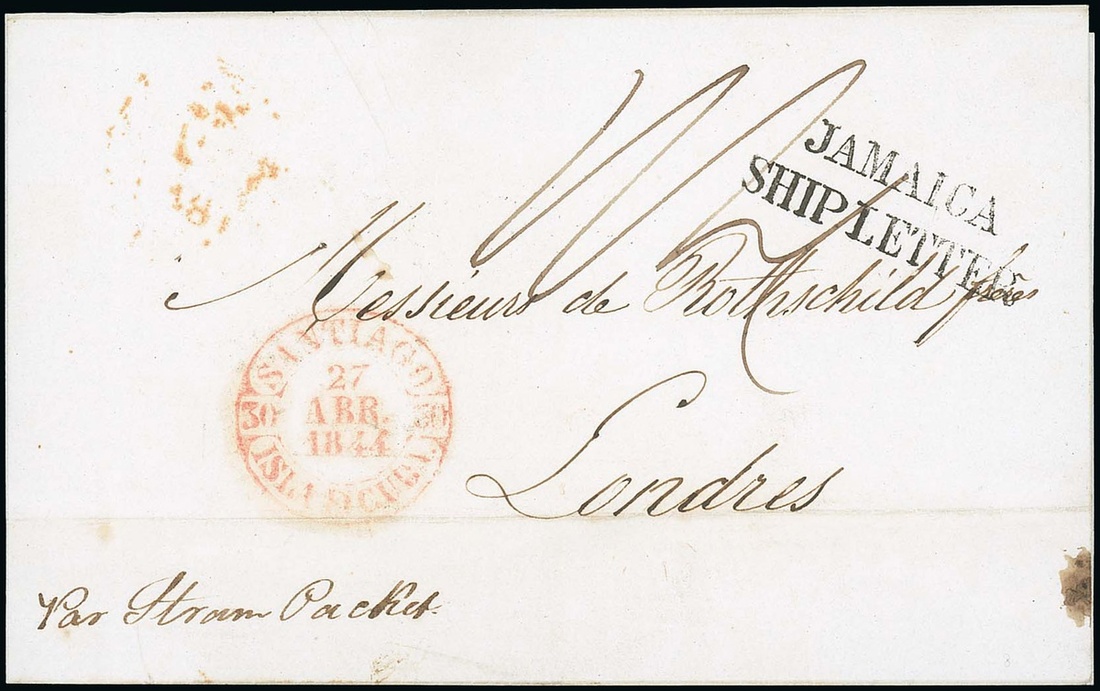 JAMAICA
SHIP LETTER
Messieurs de Rothschild frères
SANTIAGO
27
30 ABR. 30
1844
ISLA D CUBA
Londres
Par Steam Packet